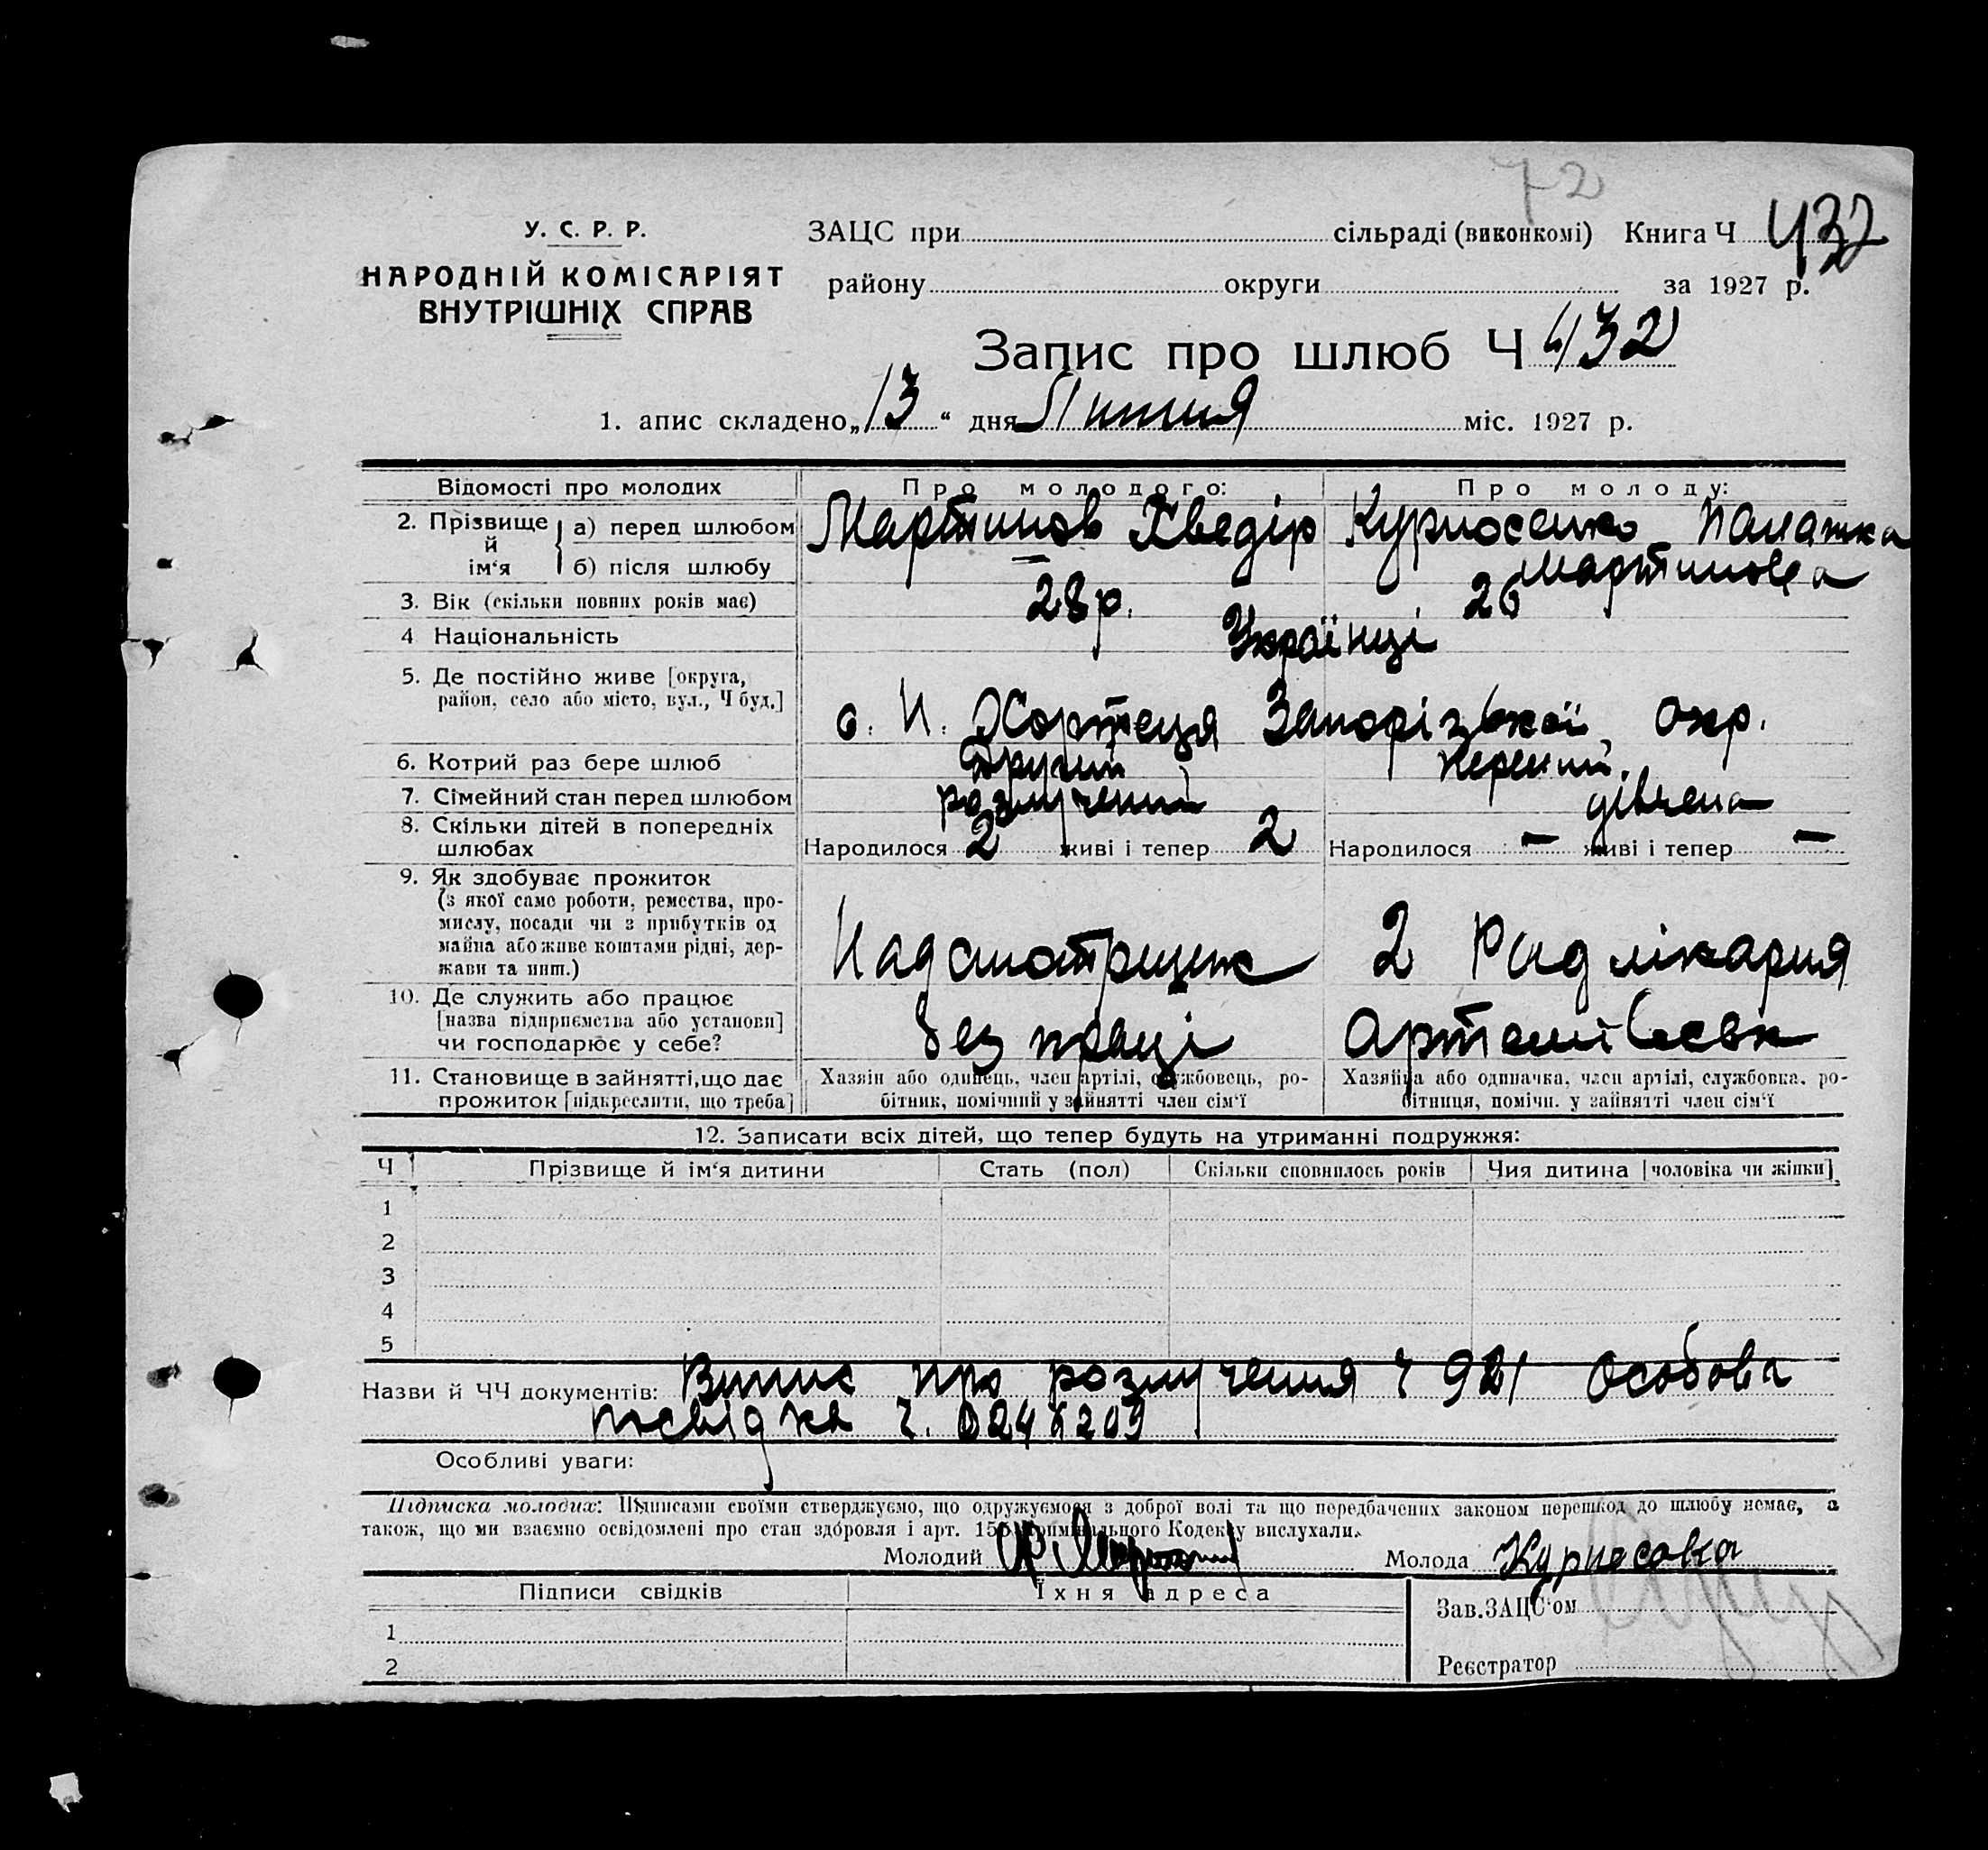 72
У. С. Р. Р.
НАРОДНІЙ КОМІСАРІЯТ
ВНУТРІШНІХ СПРАВ
ЗАЦС при сільраді (виконкомі) Книга Ч 432
району округи за 1927 р.
Запис про шлюб Ч 432
1. апис складено „13“ дня Липня міс. 1927 р.
Відомості про молодих Про молодого: Про молоду:
2. Прізвище й ім‘я а) перед шлюбом Мартинов Хведір Курносенко Палажка
б) після шлюбу — Мартинова
3. Вік (скільки повних років має) 28 р. 26
4 Національність Українці
5. Де постійно живе [округа,
район, село або місто, вул., Ч буд.] о. Н. Хортеця Запорізької окр.
6. Котрий раз бере шлюб Другий Перший
7. Сімейний стан перед шлюбом розлучений дівчена
8. Скільки дітей в попередніх
шлюбах Народилося 2 живі і тепер 2 Народилося — живі і тепер —
9. Як здобуває прожиток
(з якої саме роботи, ремества, про-
мислу, посади чи з прибутків од
майна або живе коштами рідні, дер-
жави та инш.) Надсмотрщик 2 Рад лікарня
10. Де служить або працює
[назва підприємства або установи]
чи господарює у себе? без праці
11. Становище в зайнятті, що дає
прожиток [підкреслити, що треба]
Хазяїн або одинець, член артілі, службовець, ро-
бітник, помічний у зайнятті член сім‘ї
Хазяйка або одиначка, член артілі, службовка, ро-
бітниця, помічн. у зайнятті член сім‘ї
12. Записати всіх дітей, що тепер будуть на утриманні подружжя:
Ч Прізвище й ім‘я дитини Стать (пол) Скільки сповнилось років Чия дитина [чоловіка чи жінки]
1
2
3
4
5
Назви й ЧЧ документів: Випис про розлучення ч 921 Особова
посвідка ч.
Особливі уваги:
Підписка молодих: Підписами своїми стверджуємо, що одружуємося з доброї волі та що передбачених законом перешкод до шлюбу немає, а
також, що ми взаємно освідомлені про стан здоровля і арт. 155 Кримінального Кодексу вислухали.
Молодий Молода Курносова
Підписи свідків Їхня адреса
Зав. ЗАЦС‘ом
1
2
Реєстратор